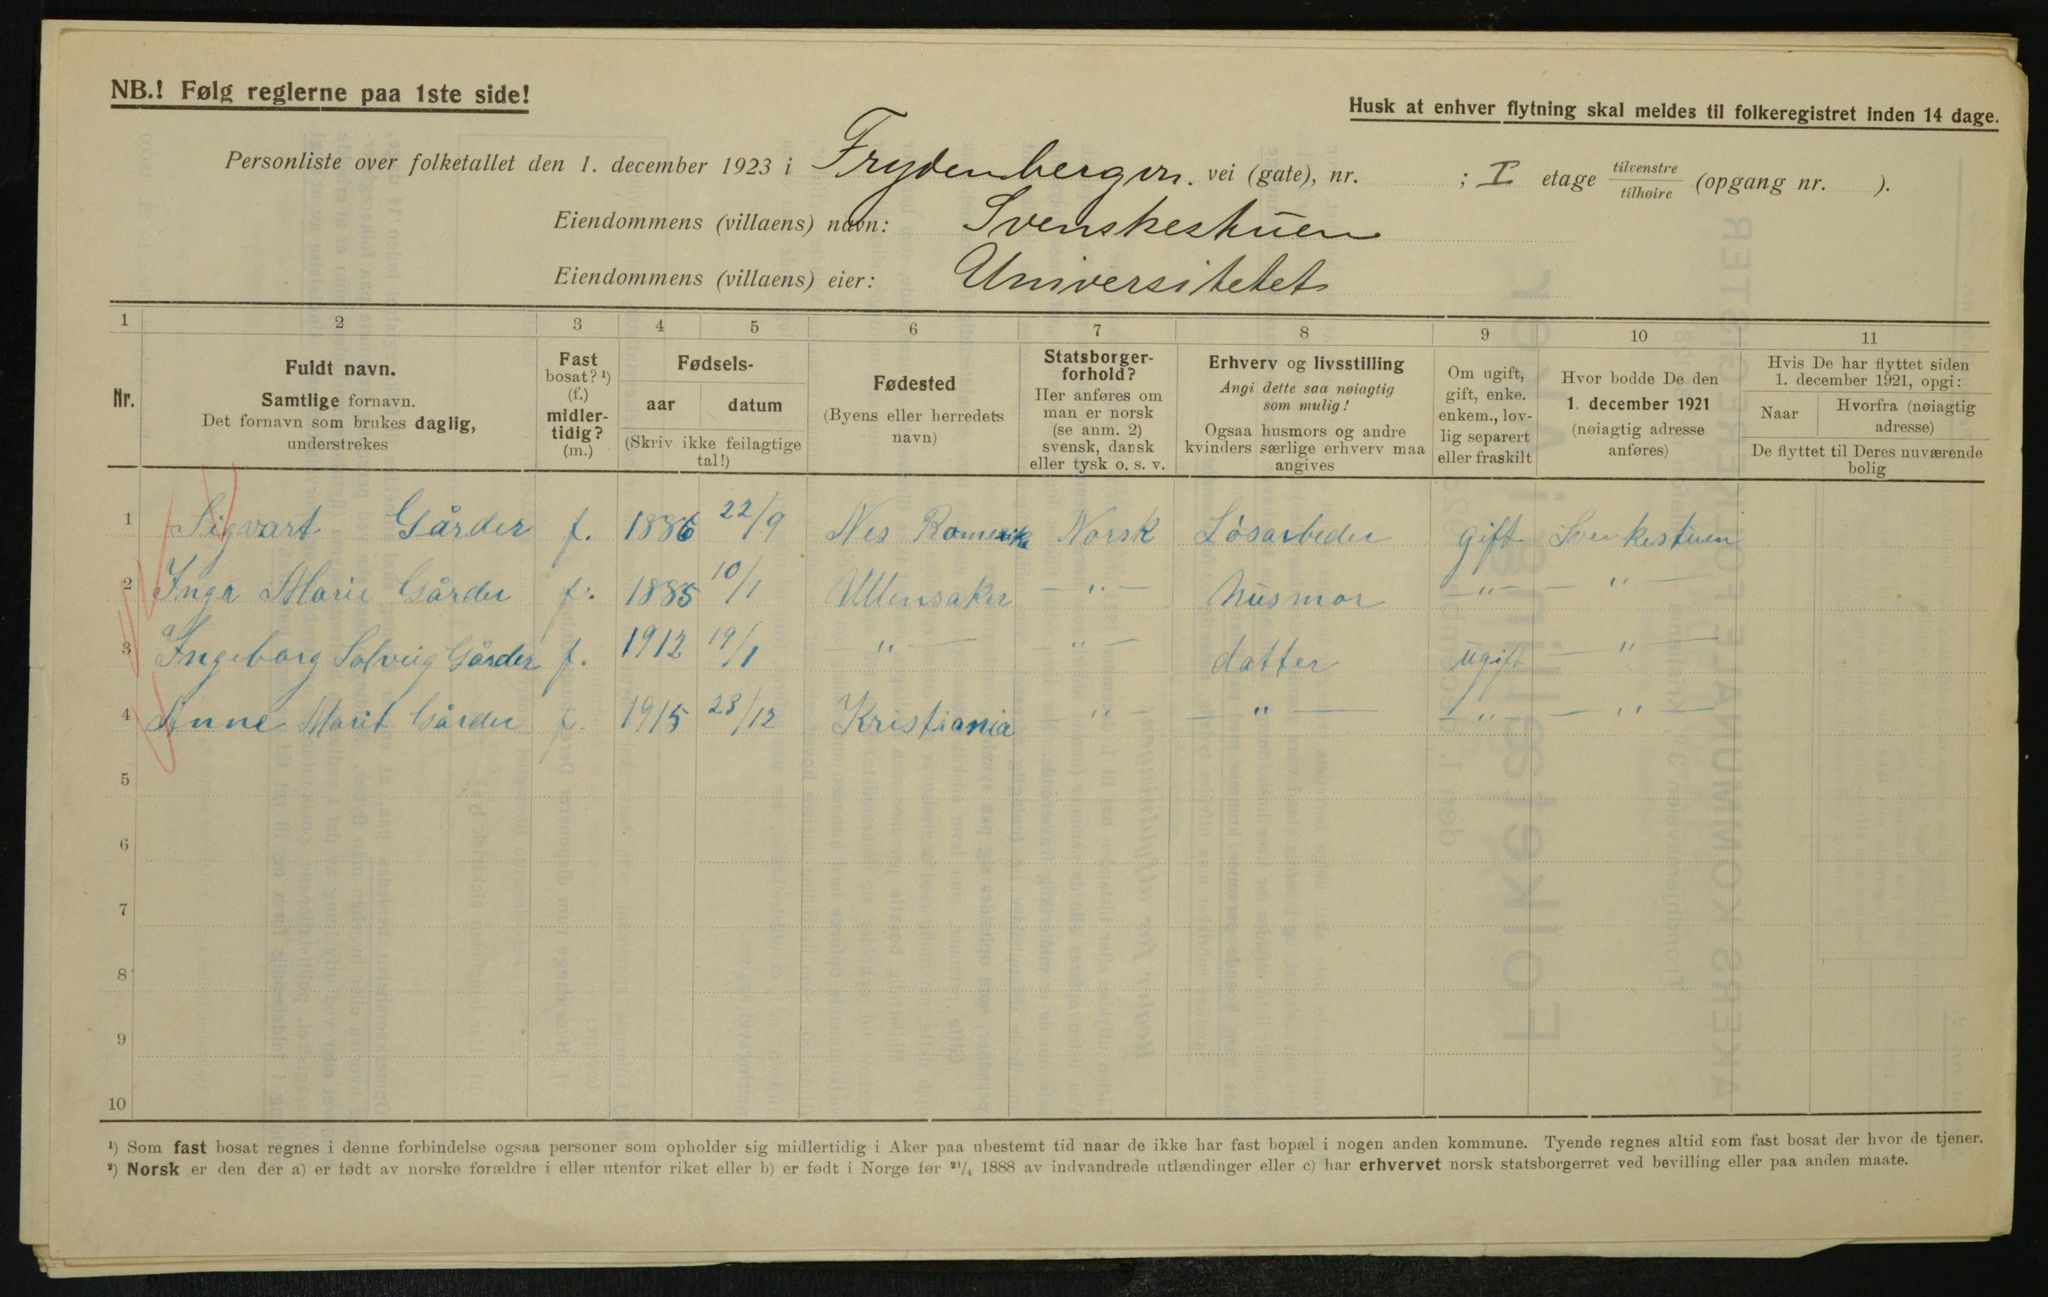 NB.! Følg reglerne paa 1ste side!
Husk at enhver flytning skal meldes til folkeregistret inden 14 dage.
Personliste over folketallet den 1. december 1923 i Frydenbergvn. vei (gate), nr. ; I etage tilvenstre / tilhøire (opgang nr. ).
Eiendommens (villaens) navn: Svenskestuen
Eiendommens (villaens) eier: Universitetet
1 2 3 4 5 6 7 8 9 10 11
Nr.
Fuldt navn.
Samtlige fornavn.
Det fornavn som brukes daglig,
understrekes
Fast
bosat? ¹)
(f.)
midler-
tidig?
(m.)
Fødsels-
aar datum
(Skriv ikke feilagtige
tal!)
Fødested
(Byens eller herredets
navn)
Statsborger-
forhold?
Her anføres om
man er norsk
(se anm. 2)
svensk, dansk
eller tysk o. s. v.
Erhverv og livsstilling
Angi dette saa nøiagtig
som mulig!
Ogsaa husmors og andre
kvinders særlige erhverv maa
angives
Om ugift,
gift, enke.
enkem., lov-
lig separert
eller fraskilt
Hvor bodde De den
1. december 1921
(nøiagtig adresse
anføres)
Hvis De har flyttet siden
1. december 1921, opgi:
Naar Hvorfra (nøiagtig
adresse)
De flyttet til Deres nuværende
bolig
1 Sigvart Gårder f. 1886 22/9 Nes Romerike Norsk Løsarbeder gift Svenkestuen
2 Inga Marie Gårder f. 1885 10/1 Ullensaker — " — husmor — " — — " —
3 Ingeborg Solveig Gårder f. 1912 19/1 " — " — datter ugift — " —
4 Anne Marit Gårder f. 1915 23/12 Kristiania — " — — " — — " — — " —
5
6
7
8
9
10
¹) Som fast bosat regnes i denne forbindelse ogsaa personer som opholder sig midlertidig i Aker paa ubestemt tid naar de ikke har fast bopæl i nogen anden kommune. Tyende regnes altid som fast bosat der hvor de tjener.
²) Norsk er den der a) er født av norske forældre i eller utenfor riket eller b) er født i Norge før ²¹/₄ 1888 av indvandrede utlændinger eller c) har erhvervet norsk statsborgerret ved bevilling eller paa anden maate.